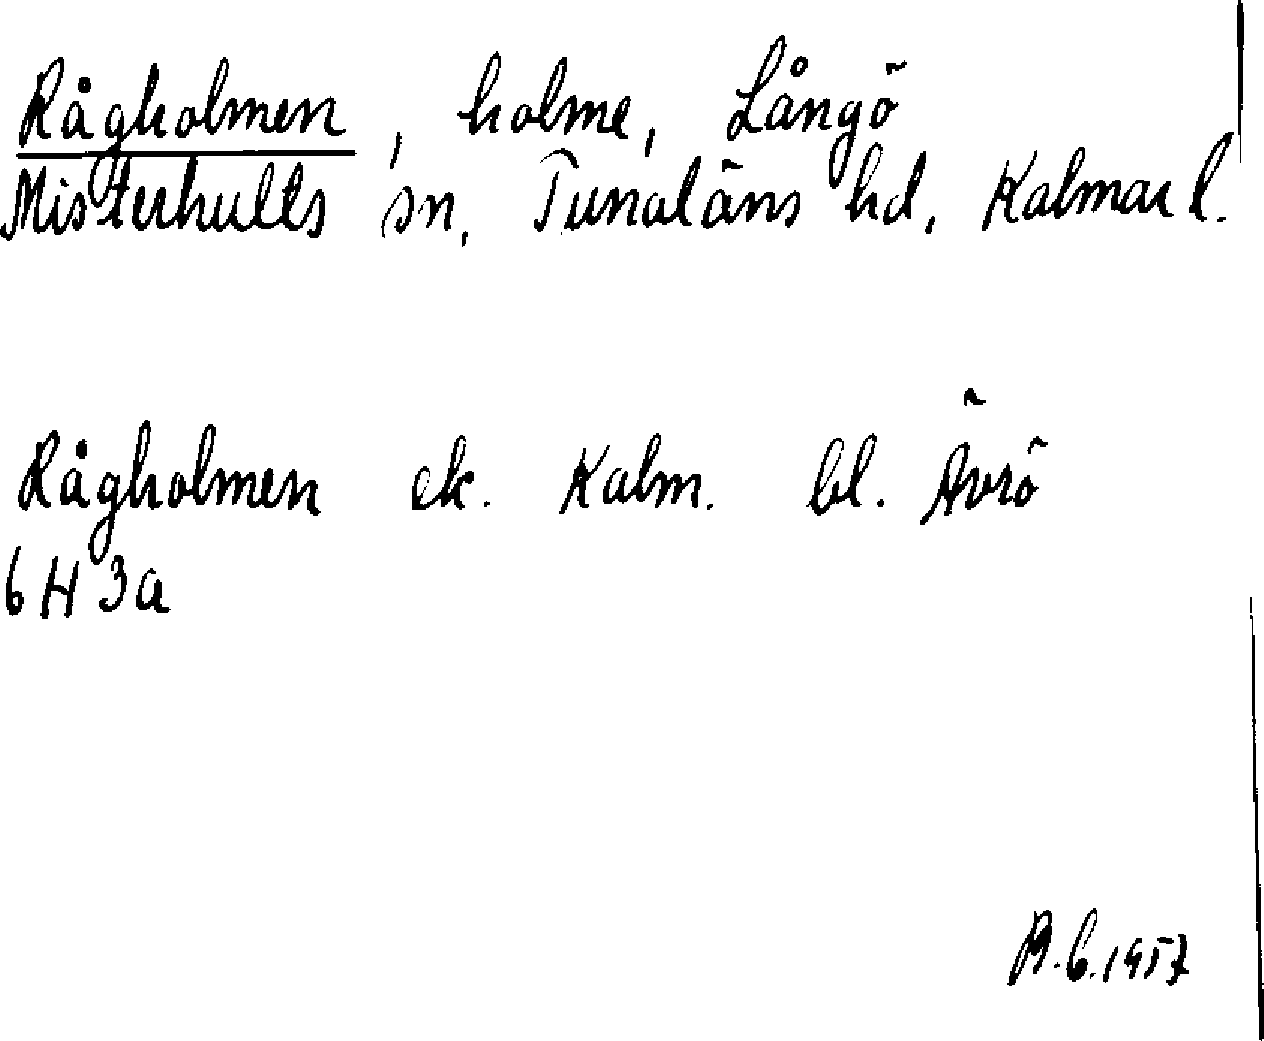 Rågholmen, holme, Långö
Misterhults sn, Tunaläns hd, Kalmar l.
Rågholmen ek. Kalm. bl. Ävrö
6 H 3a
B.C.1957